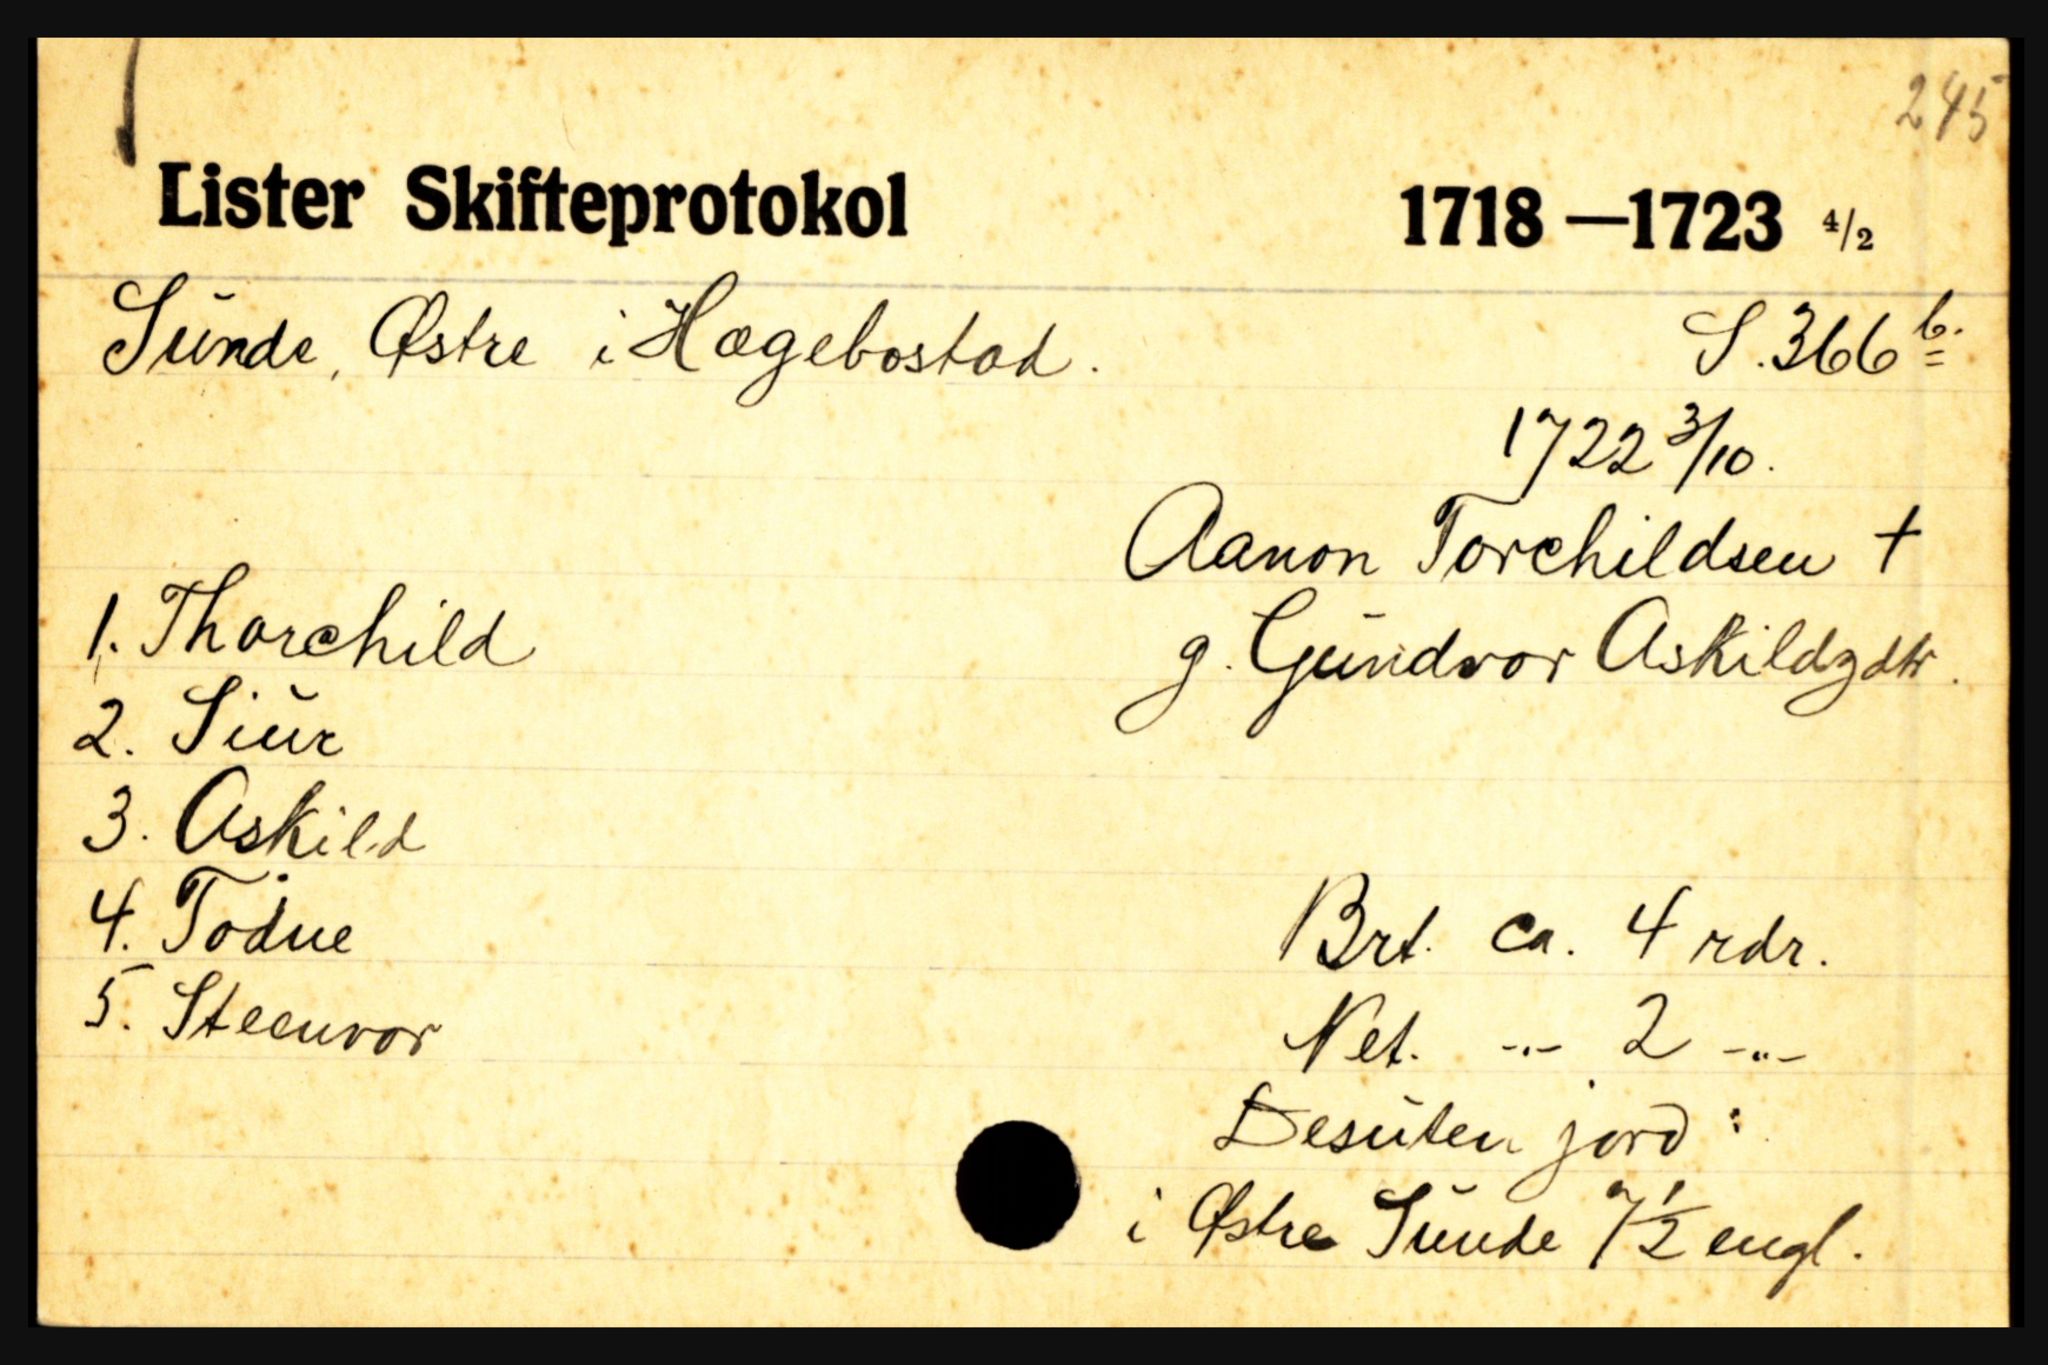 245
Lister Skifteprotokol 1718—1723 4/2
Sunde, Østre i Hægebostad. S. 366 b.
1722 3/10.
Aanon Torchildsen †
g. Gundvor Askildzdtr.
1. Thorchild
2. Siur
3. Askild
4. Todne
5. Steenvor
Brt. ca. 4 rdr.
Net. -"- 2 -"-
Desuten jord:
i Østre Sunde 7 1/2 engl.